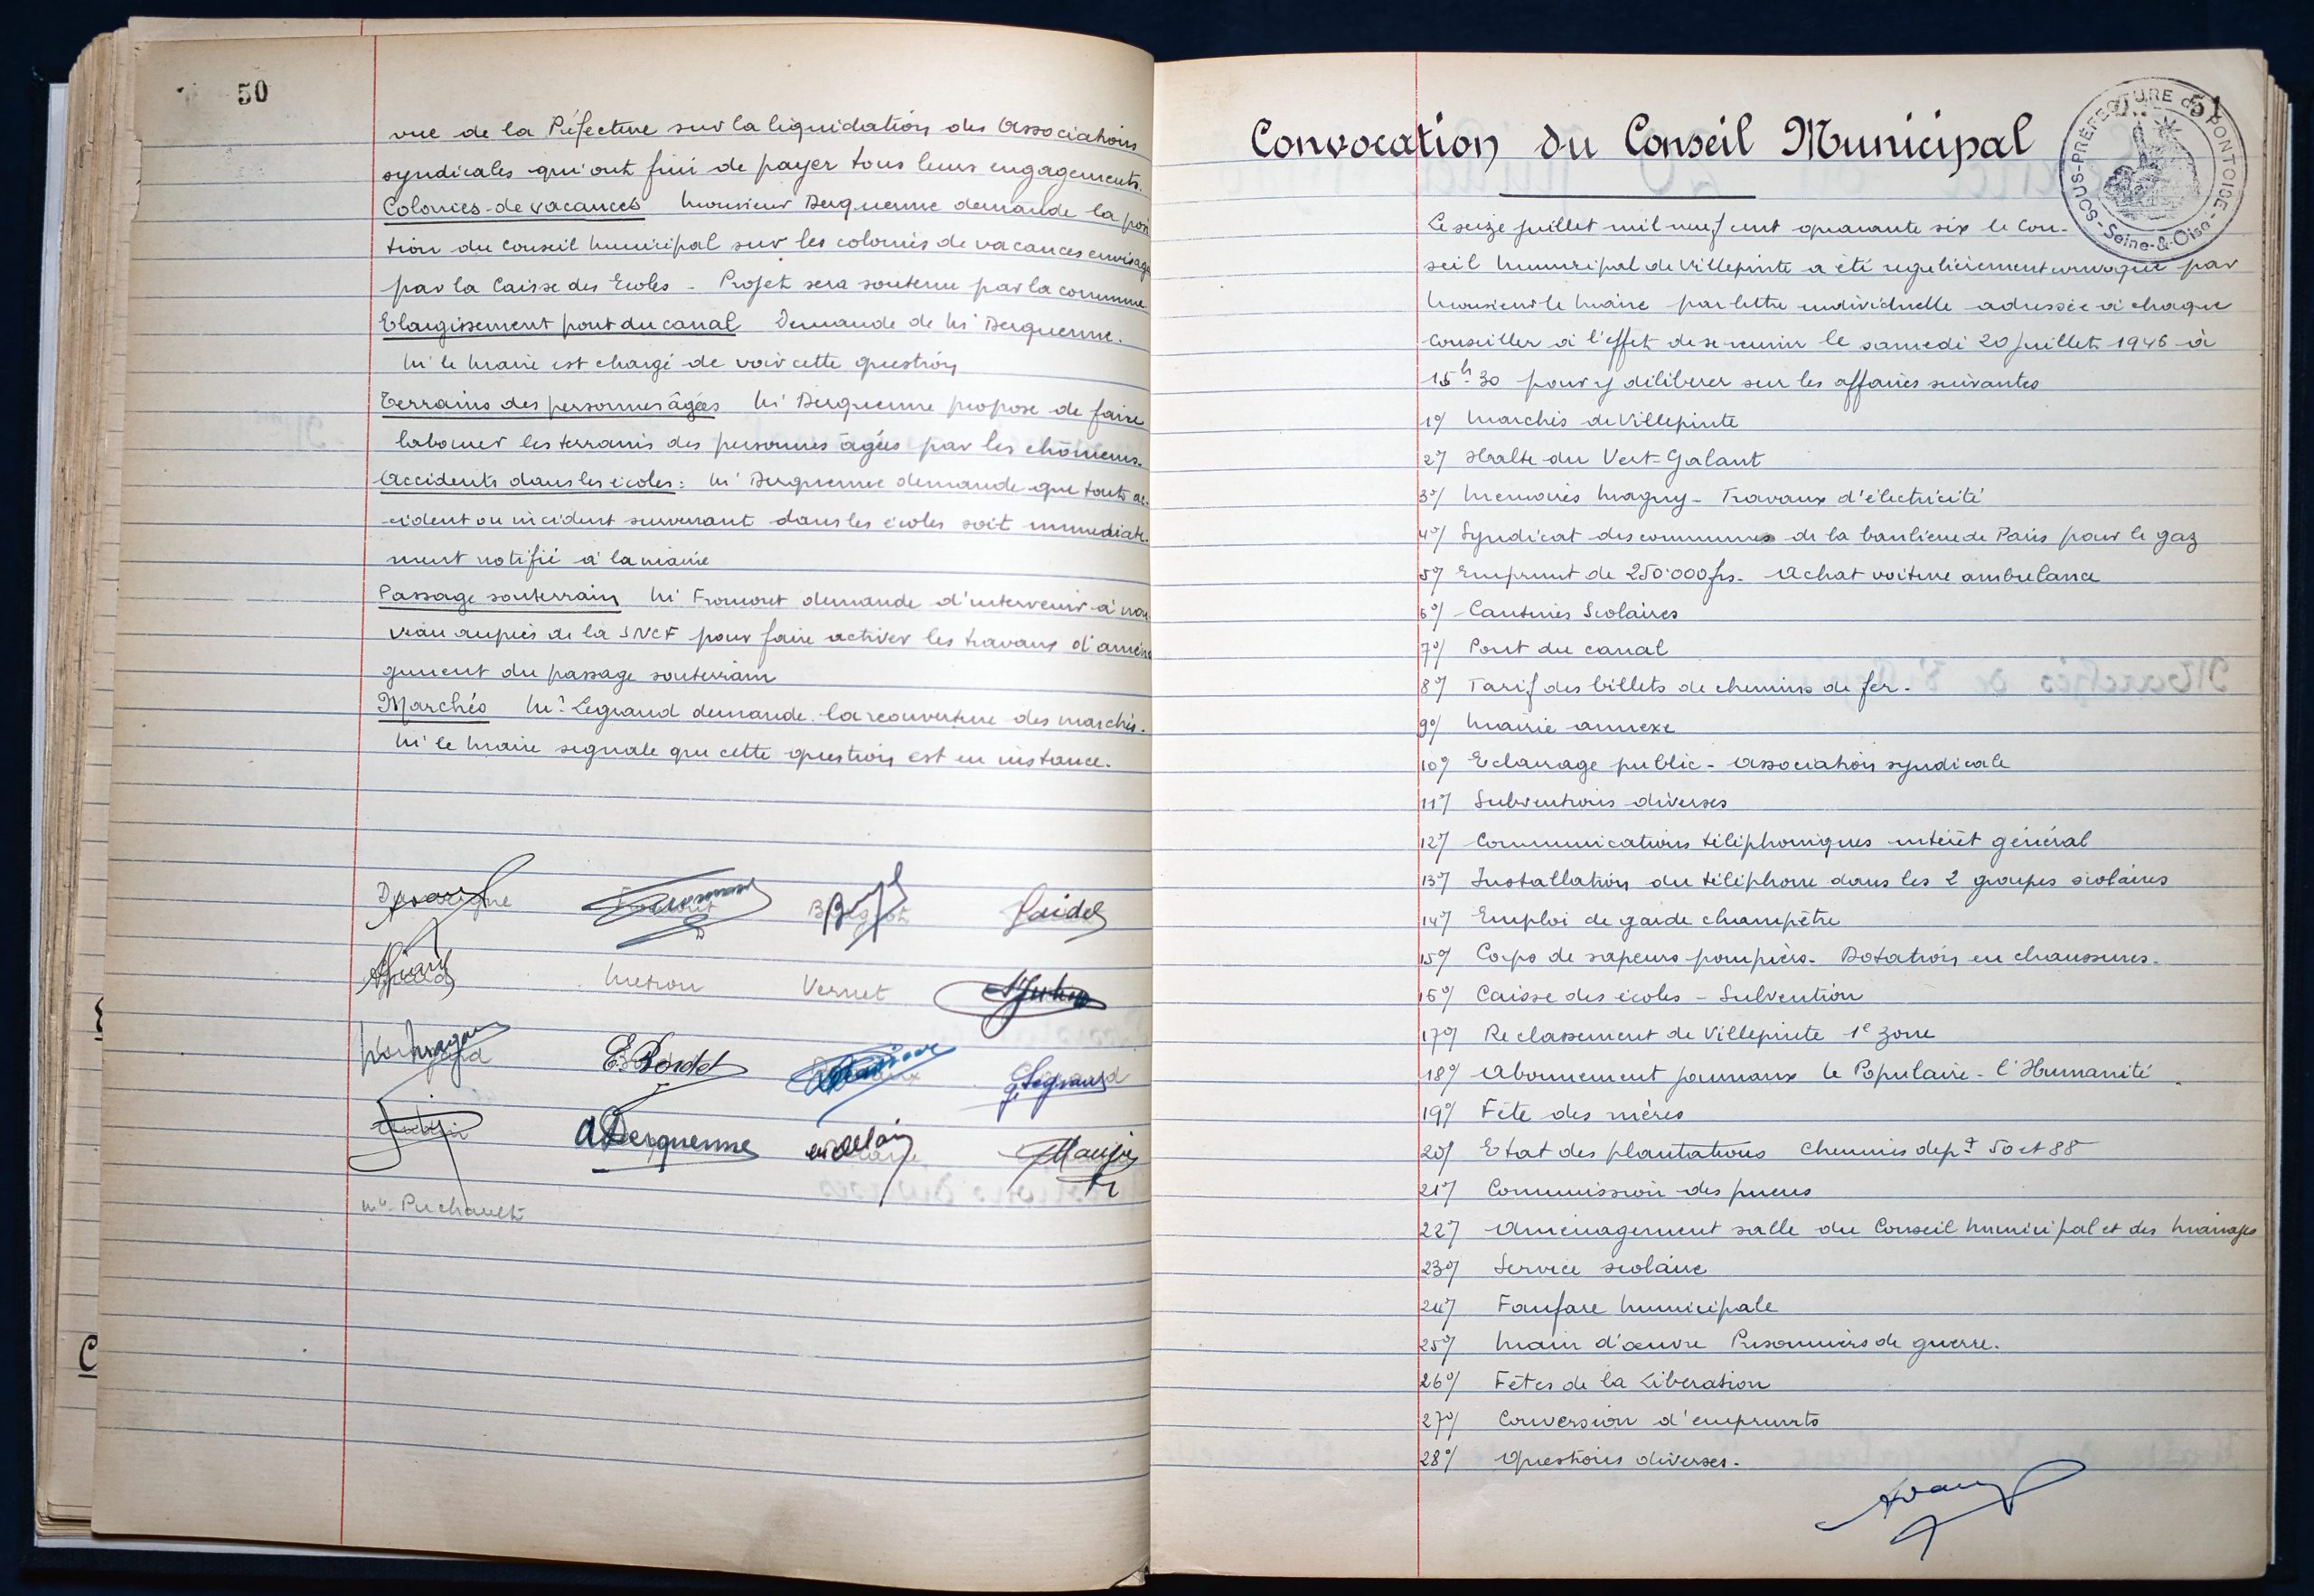 50
vue de la Préfecture sur la liquidation des Associations
syndicales qui ont fini de payer tous leurs engagements.
Colonies de vacances Monsieur Derquenne demande la posi
tion du Conseil Municipal sur les colonies de vacances envisag
par la Caisse des Ecoles - Projet sera soutenu par la commune
Elargissement pont du canal Demande de Mr Derquenne.
Mr le Maire est chargé de voir cette question
Terrains des personnes âgées Mr Derquenne propose de faire
labourer les terrains des personnes âgées par les chômeurs.
Accidents dans les écoles : Mr Derquenne demande que tout ac-
cident ou incident survenant dans les écoles soit immédiate-
ment notifié à la mairie
Passage souterrain Mr Fromont demande d'intervenir à nou
veau auprès de la SNCF pour faire activer les travaux d'aména
gement du passage souterrain
Marchés Mr Legrand demande la réouverture des marchés.
Mr le Maire signale que cette question est en instance.
Vernet
E. Bordet
G. Legrand
A Derquenne
51
SOUS-PRÉFECTURE de PONTOISE
- Seine-&-Oise -
Convocation du Conseil Municipal
Le seize juillet mil neuf cent quarante six le Con-
seil Municipal de Villepinte a été regulièrement convoqué par
Monsieur le Maire par lettre individuelle adressée à chaque
Conseiller à l'effet de se reunir le samedi 20 juillet 1946 à
15h30 pour y délibérer sur les affaires suivantes
1°/ Marchés de Villepinte
2°/ Halte du Vert-Galant
3°/ Memoires Magny - Travaux d'électricité
4°/ Syndicat des communes de la banlieue de Paris pour le gaz
5°/ Emprunt de 250.000 frs. Achat voiture ambulance
6°/ Cantines Scolaires
7°/ Pont du canal
8°/ Tarif des billets de chemins de fer.
9°/ Mairie annexe
10°/ Eclairage public - Association syndicale
11°/ Subventions diverses
12°/ Communications téléphoniques intérêt général
13°/ Installation du téléphone dans les 2 groupes scolaires
14°/ Emploi de garde champêtre
15°/ Corps de sapeurs pompiers. Dotation en chaussures.
16°/ Caisse des écoles - Subvention
17°/ Reclassement de Villepinte 1e zone
18°/ Abonnement journaux le Populaire - l'Humanité
19°/ Fête des mères
20°/ Etat des plantations Chemins dept 50 et 88
21°/ Commission des pneus
22°/ Aménagement salle du Conseil Municipal et des Mariages
23°/ Service scolaire
24°/ Fanfare Municipale
25°/ Main d'œuvre Prisonniers de guerre.
26°/ Fêtes de la Libération
27°/ Conversion d'emprunts
28°/ Questions diverses.